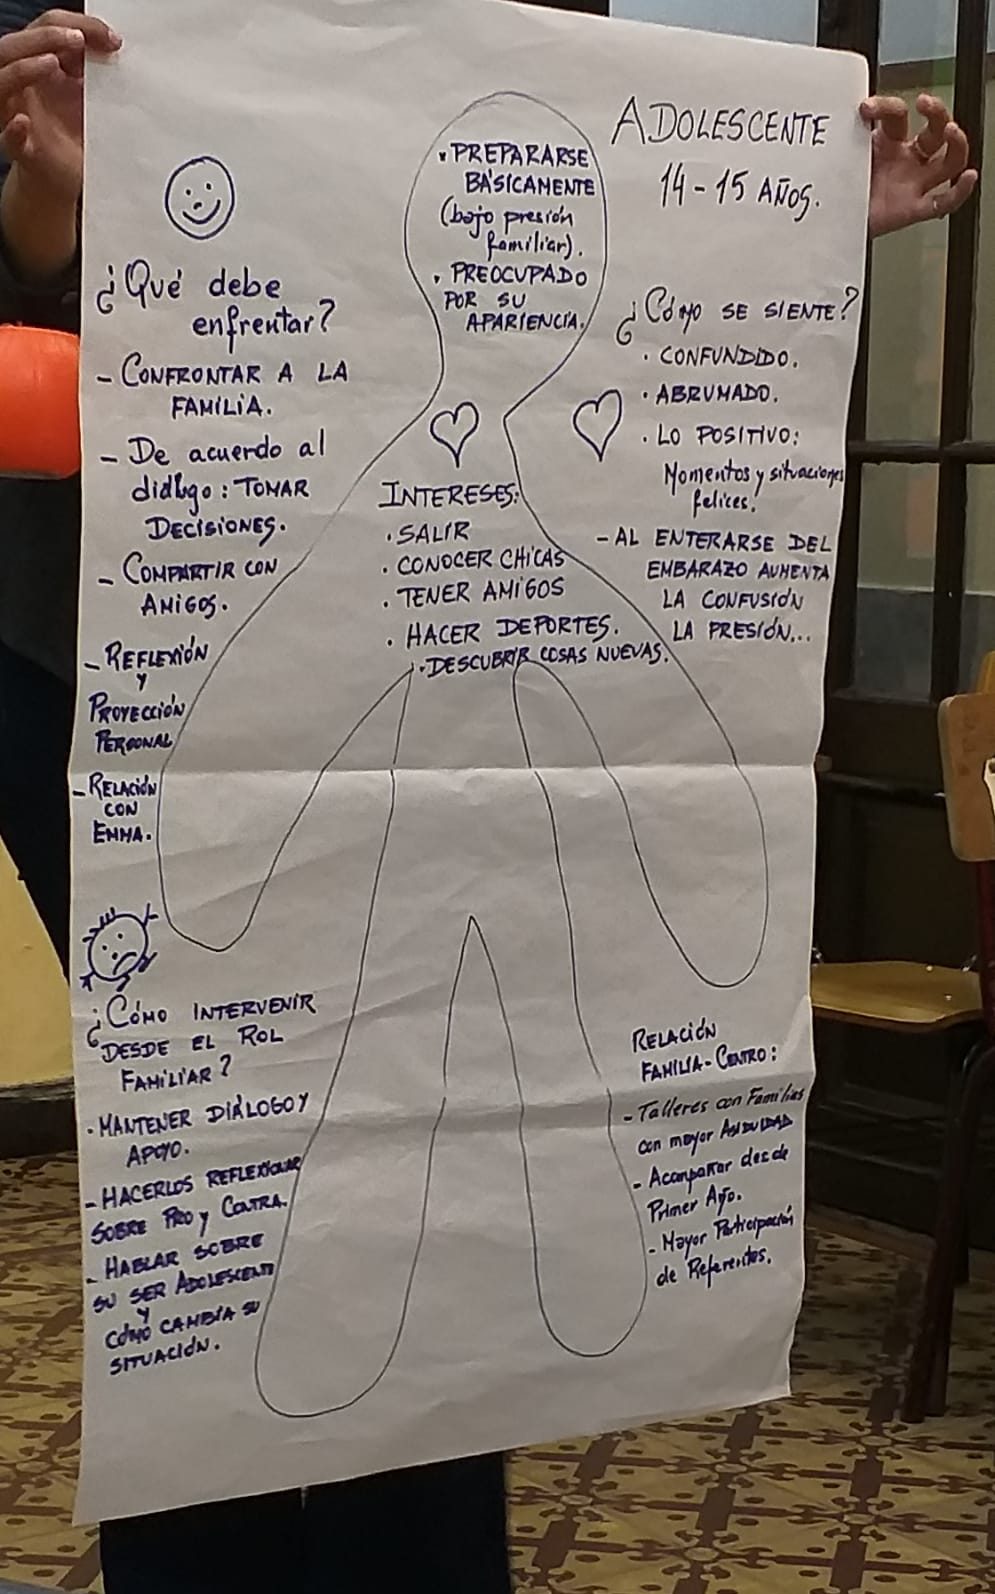 ADOLESCENTE
14-15 AÑOS.
• PREPARARSE
BÁSICAMENTE
(bajo presión
familiar).
• PREOCUPADO
POR SU
APARIENCIA.
¿Qué debe
enfrentar?
- CONFRONTAR A LA
FAMILIA.
- De acuerdo al
diálogo: TOMAR
DECISIONES.
- COMPARTIR CON
AMIGOS.
- REFLEXIÓN
Y
PROYECCIÓN
PERSONAL
- RELACIÓN
CON
EMMA.
INTERESES:
• SALIR
• CONOCER CHICAS
• TENER AMIGOS
• HACER DEPORTES.
• DESCUBRIR COSAS NUEVAS.
¿CÓMO SE SIENTE?
• CONFUNDIDO.
• ABRUMADO.
• LO POSITIVO:
Momentos y situaciones
felices.
- AL ENTERARSE DEL
EMBARAZO AUMENTA
LA CONFUSIÓN
LA PRESIÓN...
¿CÓMO INTERVENIR
DESDE EL ROL
FAMILIAR?
• MANTENER DIÁLOGO Y
APOYO.
- HACERLOS REFLEXIONAR
SOBRE PRO Y CONTRA.
- HABLAR SOBRE
SU SER ADOLESCENTE
Y
CÓMO CAMBIA SU
SITUACIÓN.
RELACIÓN
FAMILIA-CENTRO:
- Talleres con Familias
con mayor ASIDUIDAD
- Acompañar desde
Primer Año.
- Mayor Participación
de Referentes.